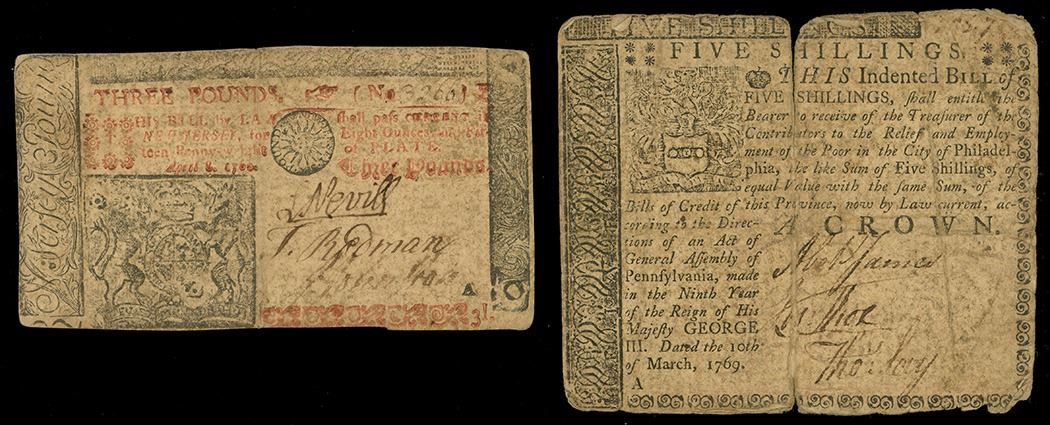 THREE POUNDS.
(No 3266)
His BILL by LAW
shall pass CURRENT in
NEW-JERSEY, for
Eight Ounces
teen Pennyweight
of PLATE.
April 8. 1760
Three Pounds
Jersey Pound
S Nevill
T. Rodman
A
3l.
IVE SHILLINGS
FIVE SHILLINGS.
THIS Indented BILL of
FIVE SHILLINGS, shall entitle the
Bearer to receive of the Treasurer of the
Contributors to the Relief and Employ-
ment of the Poor in the City of Philadel-
phia, the like Sum of Five Shillings, of
equal Value with the same Sum, of the
Bills of Credit of this Province, now by Law current, ac-
cording to the Direc-
A CROWN.
tions of an Act of
General Assembly of
Pennsylvania, made
in the Ninth Year
of the Reign of His
Majesty GEORGE
III. Dated the 10th
of March, 1769.
A
Abel James